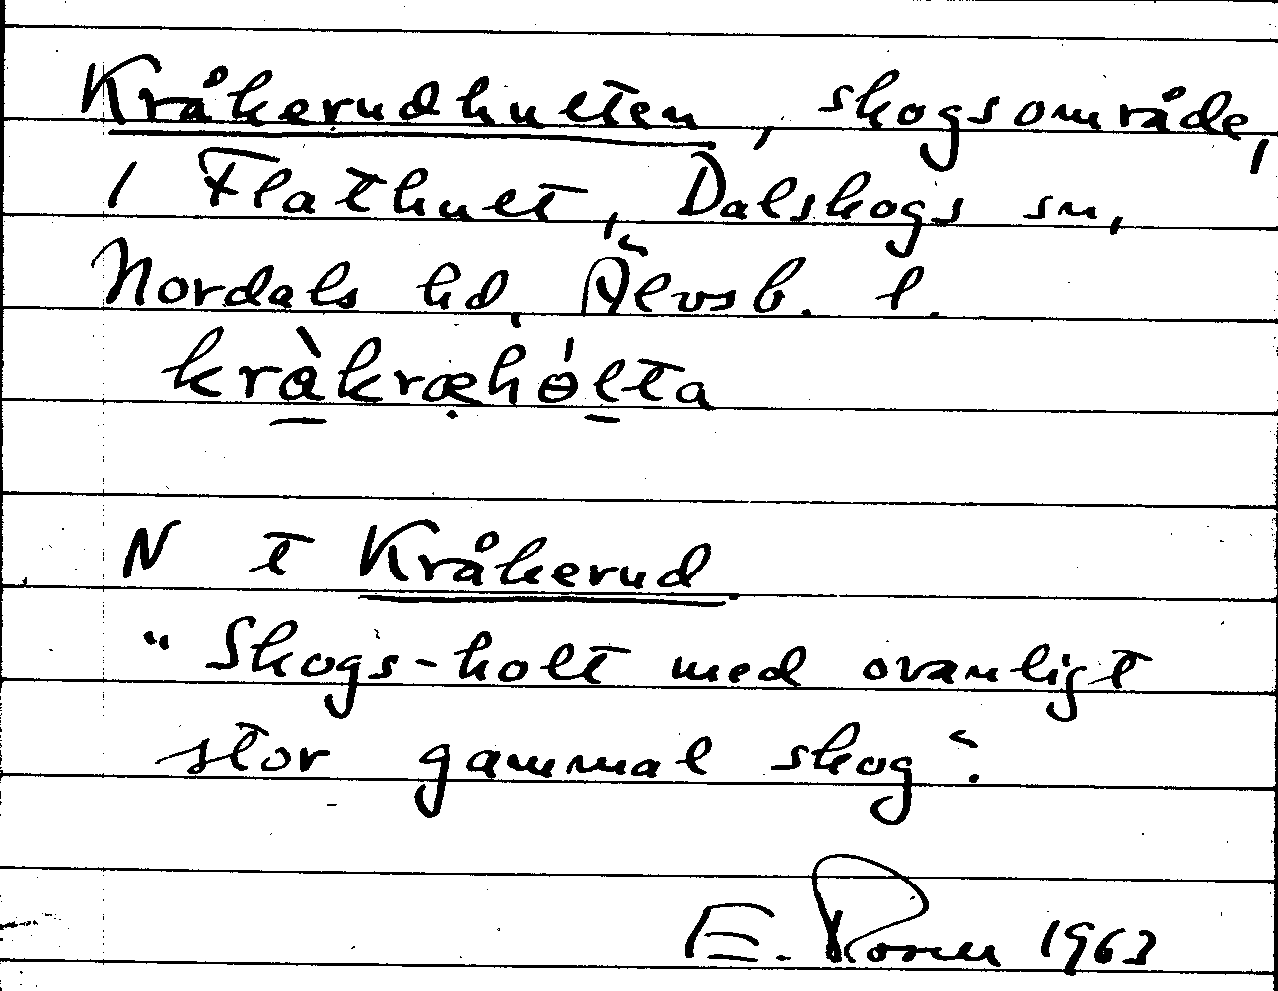 Kråkerudhulten, skogsområde,
i Flathult, Dalskogs sn,
Nordals hd, Älvsb. l.
kràkræhɵ́lta
N t Kråkerud
"Skogs-holt med ovanligt
stor gammal skog".
E. Rosell 1963